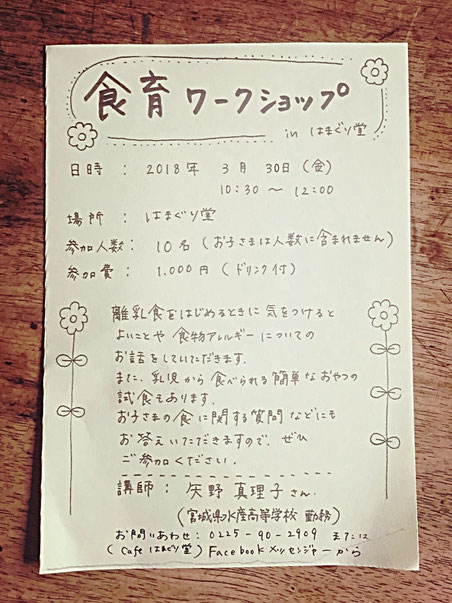 食育ワークショップ
in はまぐり堂
日時 : 2018年 3月 30日(金)
10:30 ～ 12:00
場所 : はまぐり堂
参加人数 : 10名 (お子さまは人数に含まれません)
参加費 : 1.000円 (ドリンク付)
離乳食をはじめるときに気をつけると
よいことや 食物アレルギーについての
お話をしていただきます.
また、乳児から食べられる簡単なおやつの
試食もあります.
お子さまの食に関する質問などにも
お答えいただきますので、ぜひ
ご参加ください.
講師 : 矢野 真理子さん.
(宮城県水産高等学校 勤務)
お問いあわせ : 0225-90-2909 または
(Cafe はまぐり堂) Facebook メッセンジャーから